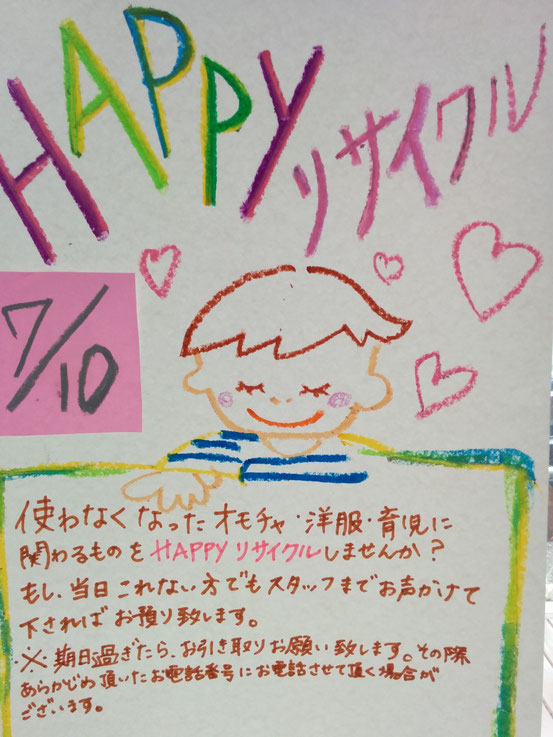 HAPPY リサイクル
7/10
使わなくなったオモチャ・洋服・育児に
関わるものをHAPPYリサイクルしませんか?
もし、当日これない方でもスタッフまでお声かけて
下さればお預り致します。
※期日過ぎたら、お引き取りお願い致します。その際
あらかじめ頂いたお電話番号にお電話させて頂く場合が
ございます。